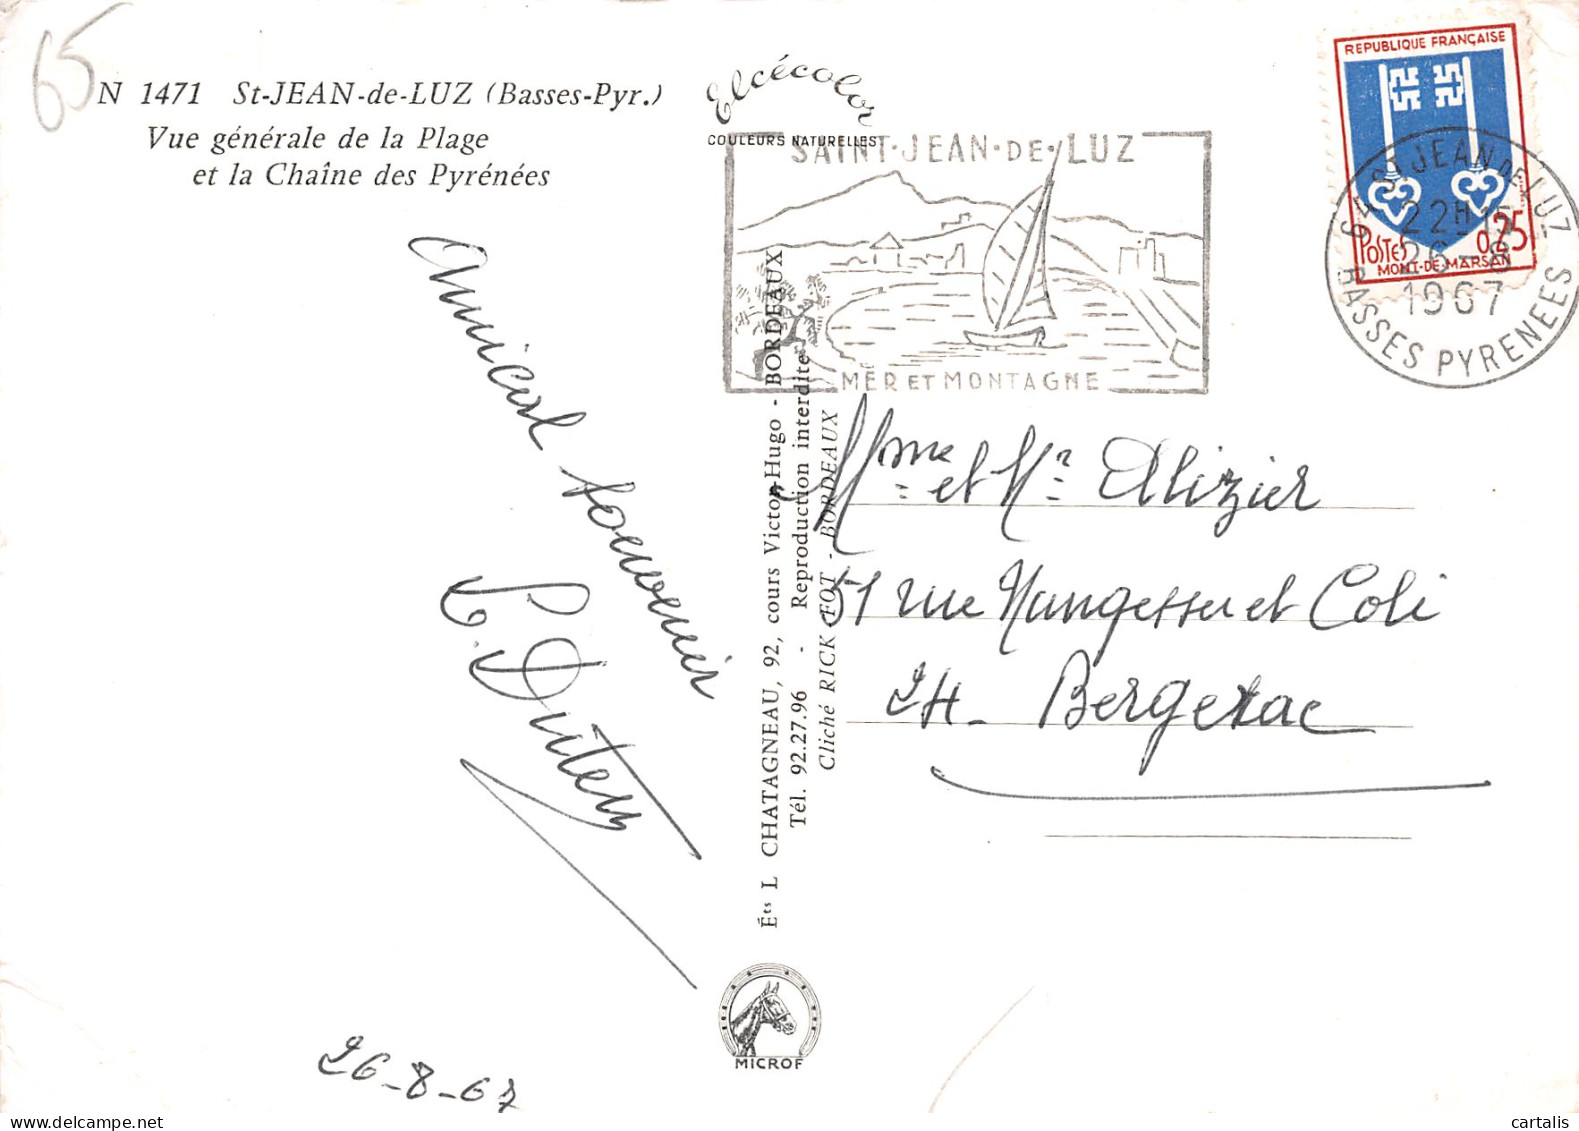 65
N 1471 St-JEAN-de-LUZ (Basses-Pyr.)
Vue générale de la Plage
et la Chaîne des Pyrénées
Elcécolor
COULEURS NATURELLES
SAINT·JEAN·DE·LUZ
MER ET MONTAGNE
REPUBLIQUE FRANÇAISE
POSTES 0,25
MONT-DE-MARSAN
64 ST JEAN DE LUZ
22H15
26-8
1967
BASSES PYRENEES
Amical souvenir
26-8-67
Éts L CHATAGNEAU, 92, cours Victor-Hugo - BORDEAUX
Tél. 92.27.96 - Reproduction interdite
Cliché RICK FOT - BORDEAUX
MICROF
Mme et Mr Alizier
51 rue Nungesser et Coli
24- Bergerac
cartalis